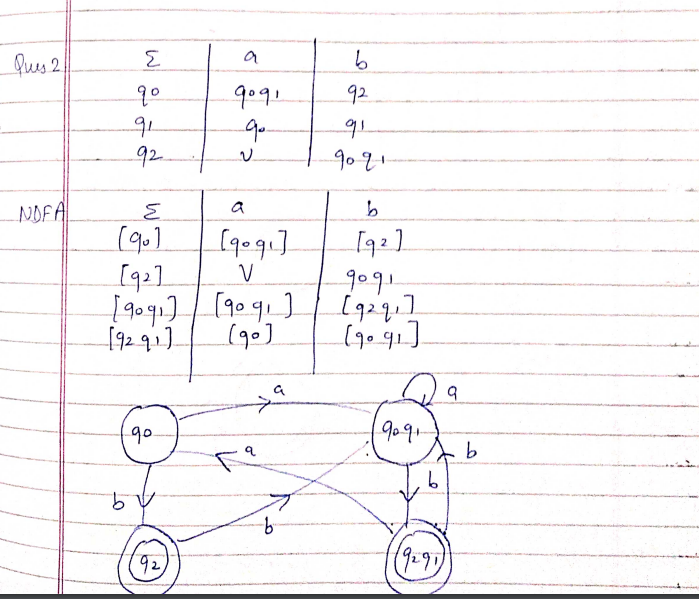 Ques 2 Σ a b
q0 q0q1 q2
q1 q0 q1
q2 ν q0q1
NDFA Σ a b
[q0] [q0q1] [q2]
[q2] V q0q1
[q0q1] [q0q1] [q2q1]
[q2q1] [q0] [q0q1]
a a
q0 q0q1
a b
b b
b
q2 q2q1